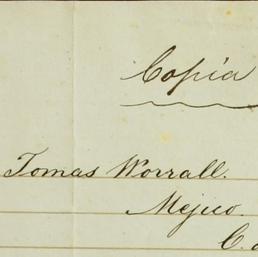 Copia
Tomas Worrall.
Mejico.
C.